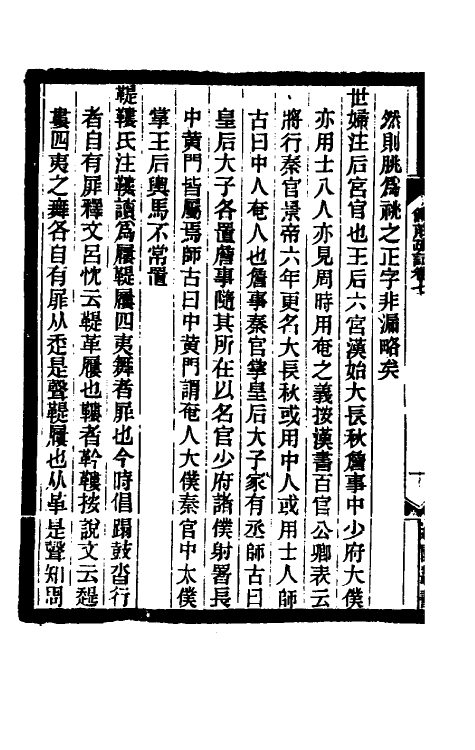 然則脁爲祧之正字非漏略矣
世婦注后宮官也王后六宮漢始大長秋詹事中少府大僕
亦用士八人亦見周時用奄之義按漢書百官公卿表云
將行秦官景帝六年更名大長秋或用中人或用士人師
古曰中人奄人也詹事秦官掌皇后大子家有丞師古曰
皇后大子各置詹事隨其所在以名官少府諸僕射署長
中黄門皆屬焉師古曰中黄門謂奄人大僕秦官中太僕
掌王后輿馬不常置
鞮鞻氏注鞻讀爲屨鞮屨四夷舞者屝也今時倡蹋鼓沓行
者自有屝釋文呂忱云鞮革履也鞻者軡鞻按說文云趧
婁四夷之舞各自有屝从走是聲鞮履也从革是聲知周